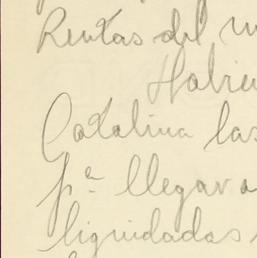 Rentas del
Habie
Catalina las
pª llegar a
liquidadas